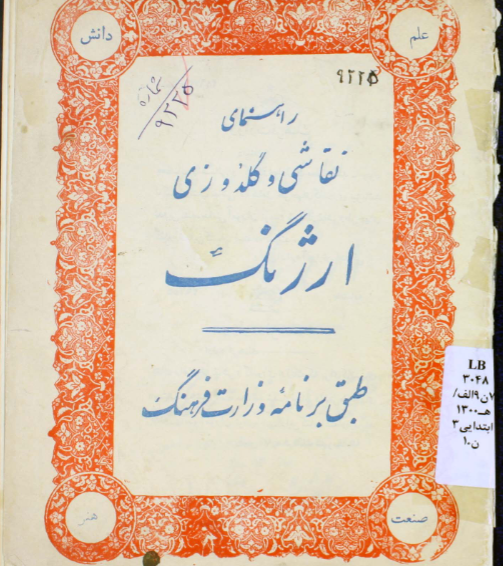 علم
دانش
۹۲۲۵
شماره
۹۲۲۵
راهنمای
نقاشی و گلدوزی
ارژنگ
طبق برنامه وزارت فرهنگ
LB
۳۰۴۸
/الف۹ن۷
هـ۱۳۰۰
ابتدایی۳
ن۱۰
صنعت
هنر